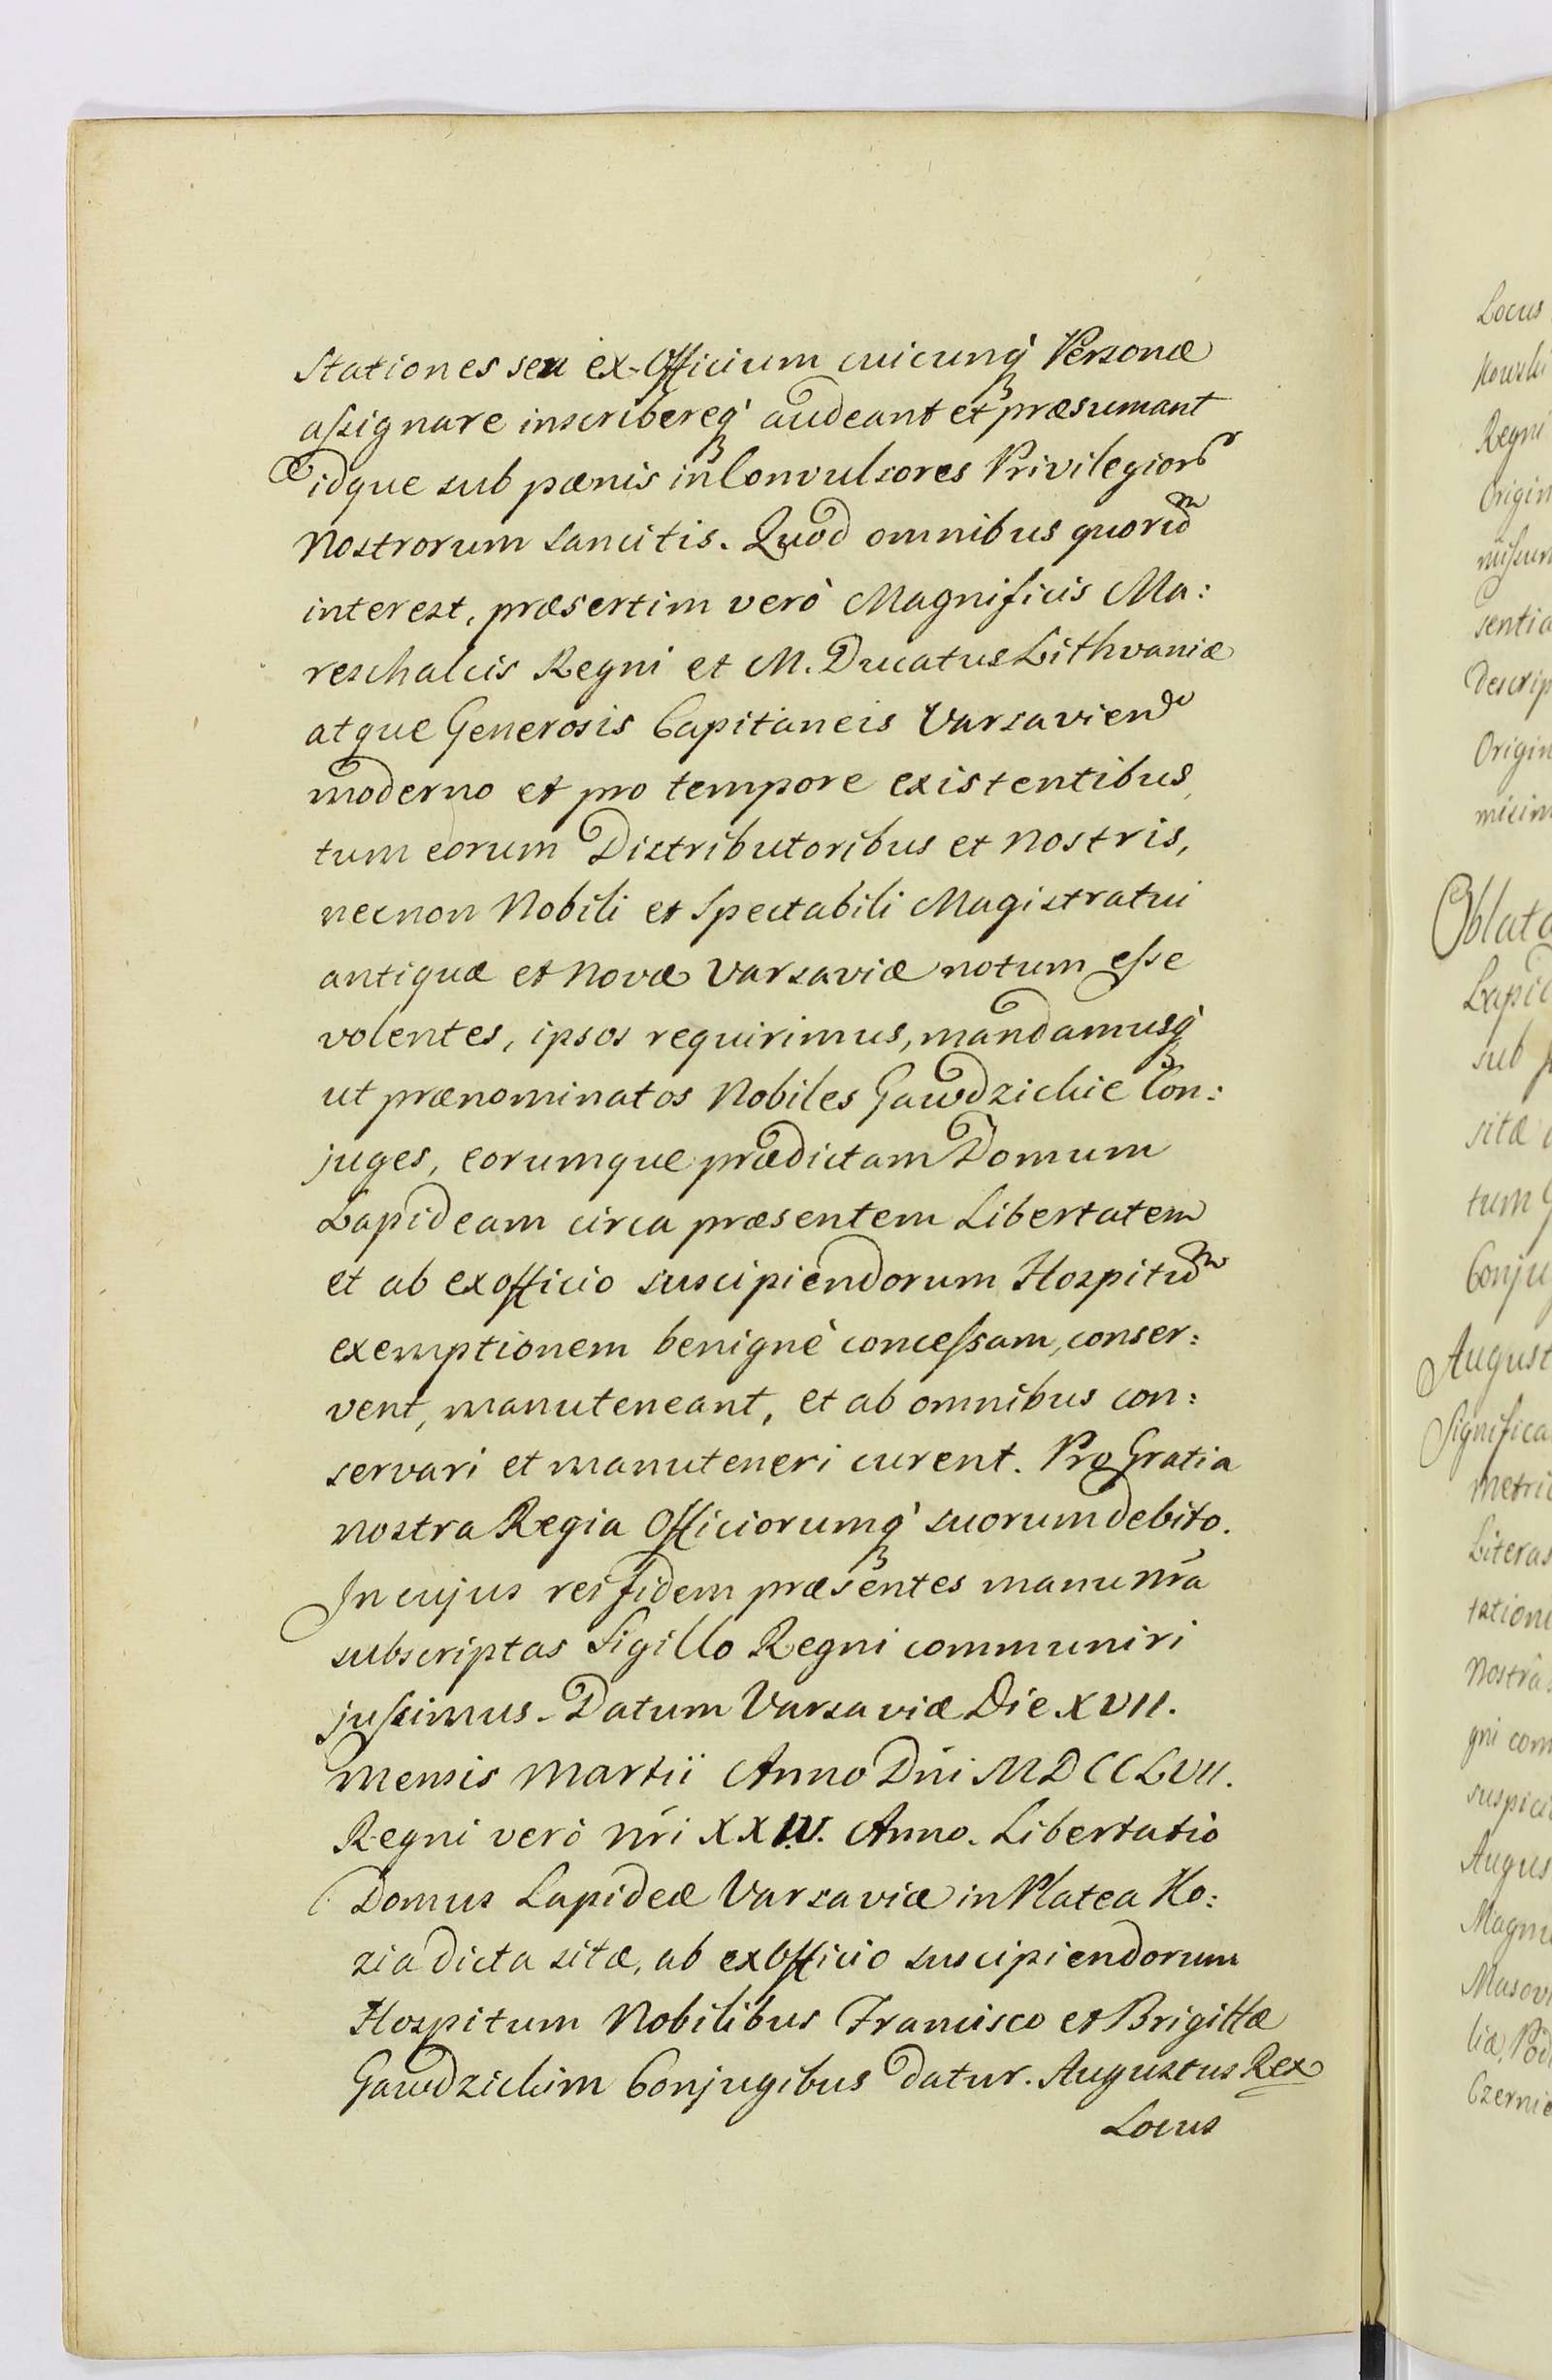 Stationes seu ex-Officium cuicunq́ Personæ
aſsignare inscribereq́ audeant et præsumant
idque sub pœnis in Convulsores Privilegior
Nostrorum sancitis. Quod omnibus quorũ
interest, præsertim verò Magnificis Ma:
reschalcis Regni et M. Ducatus Lithvaniæ
atque Generosis Capitaneis Varsavien
moderno et pro tempore existentibus,
tum eorum Distributoribus et nostris,
necnon Nobili et Spectabili Magistratui
antiquæ et Novæ Varsaviæ notum eſse
volentes, ipsos requirimus, mandamusq́
ut prænominatos Nobiles Gawdzickie Con:
juges, eorumque prædictam Domum
Lapideam circa præsentem Libertatem
et ab exofficio suscipiendorum Hospitũ
exemptionem benignè conceſsam, conser:
vent, manuteneant, et ab omnibus con:
servari et manuteneri curent. Pro Gratia
nostra Regia Officiorumq́ suorum debito.
In cujus rei fidem præsentes manu nr̃a
subscriptas Sigillo Regni communiri
juſsimus. Datum Varsaviæ Die XVII.
Mensis Martii Anno Dñi MDCCLVII.
Regni verò nr̃i XXIV. Anno. Libertatio
Domus Lapideæ Varsaviæ in Platea Ko:
zia dicta sitæ, ab exofficio suscipiendorum
Hospitum Nobilibus Francisco et Brigittæ
Gawdzickim Conjugibus datur. Augustus Rex
Locus
Locus
Regni
Origin
sentia
Descrip
Origin
Oblata
Lapid
sub
sitæ
tum
Conju
August
Significa
metric
Literas
tatione
nostra
gni com
suspici
Augus
Magnu
Masov
liæ, Pod
Czernie